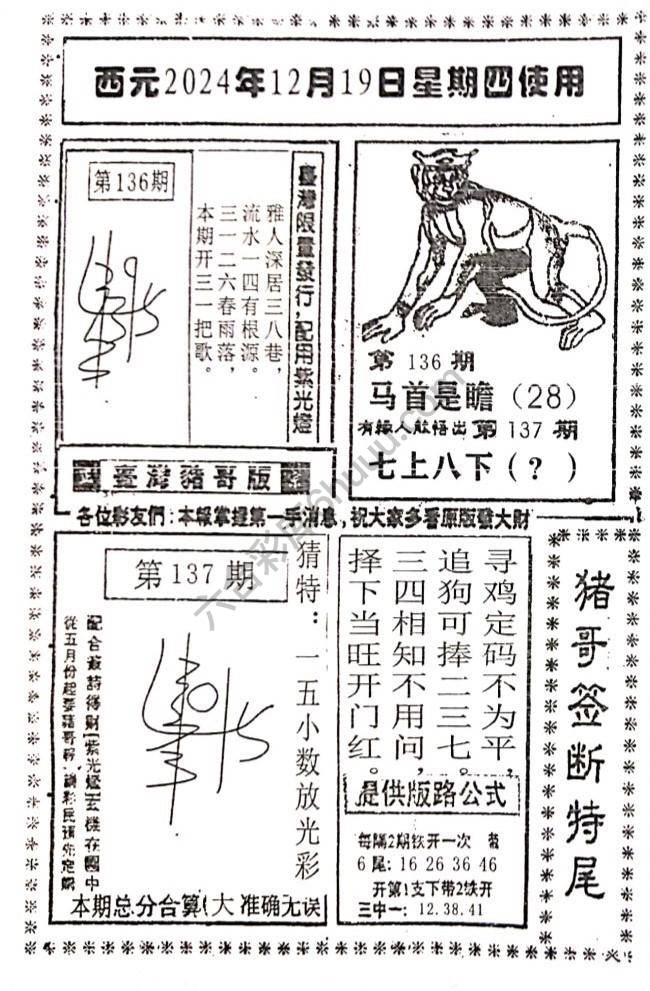 西元2024年12月19日星期四使用
第136期
臺灣限量發行,配用紫光燈
雅人深居三八巷,
流水一四有根源。
三一二六春雨落,
本期开三一把歌。
第136期
马首是瞻(28)
有緣人能悟出第137期
七上八下(?)
臺灣豬哥版
各位彩友們:本報掌握第一手消息,祝大家多看原版發大財
第137期
猜特:一五小数放光彩
配合簽詩得財[紫光燈]玄機在圖中
從五月份起要豬哥報 請彩民預先定購
本期总分合算(大 准确无误
寻鸡定码不为平,
追狗可捧二三七。
三四相知不用问,
择下当旺开门红。
提供版路公式
每隔2期铁开一次
6尾:16 26 36 46
开第1支下带2铁开
三中一:12.38.41
猪哥签断特尾